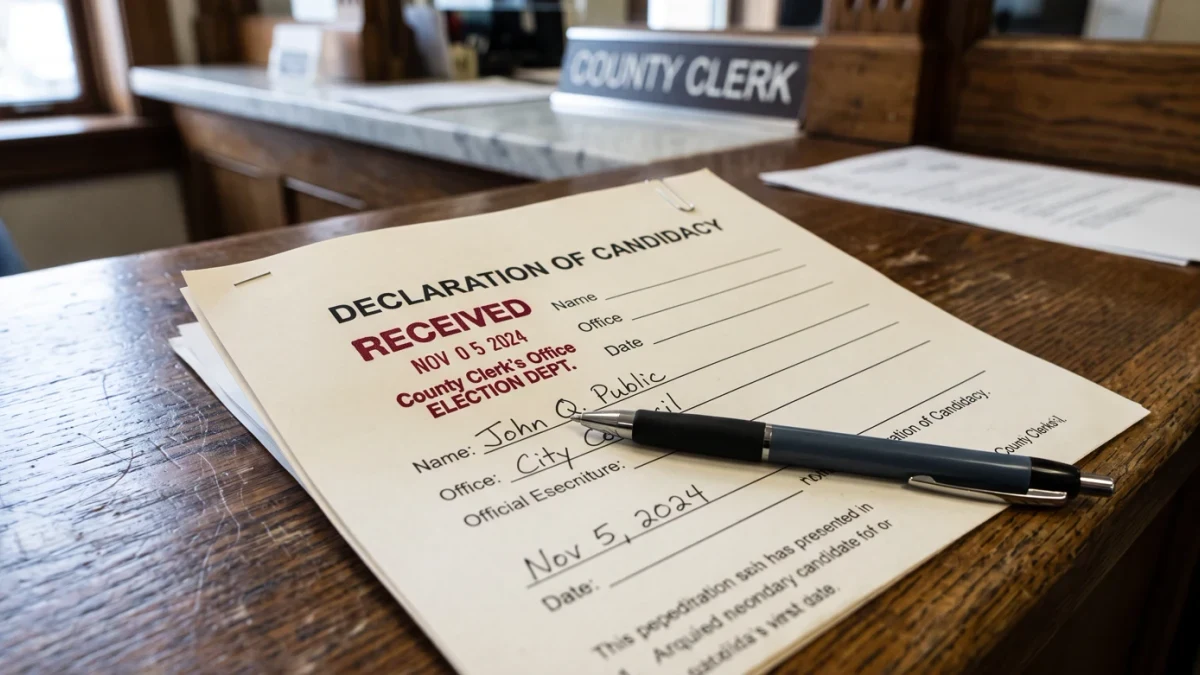 COUNTY CLERK
DECLARATION OF CANDIDACY
RECEIVED
NOV 05 2024
County Clerk's Office
ELECTION DEPT.
Name
Office
Date
Name: John Q. Public
Office: City
Official Esecniture:
Nov 5, 2024
Date:
ation of Candidacy.
County Clerks
This has presented in
candidate for or
date.